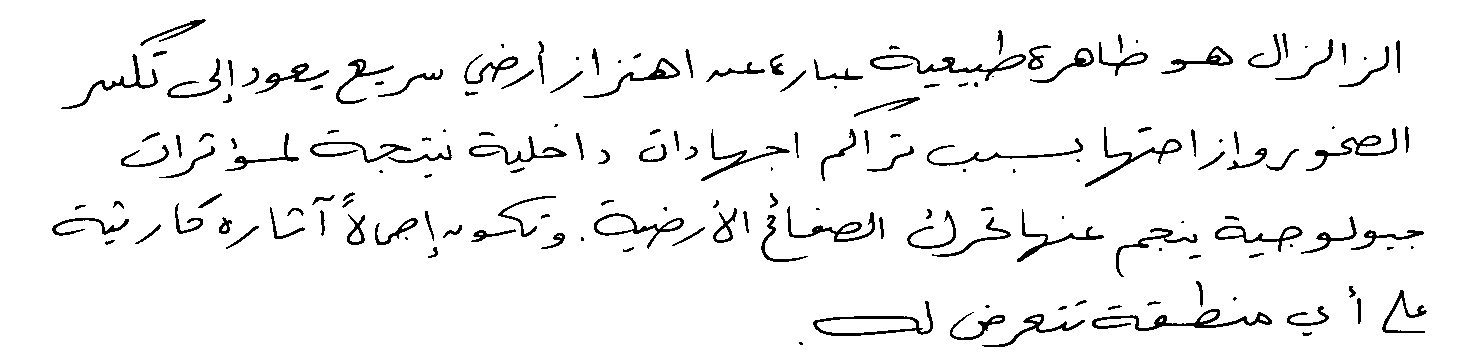 الزلزال هو ظاهرة طبيعية عبارة عن اهتزاز أرضي سريع يعود إلى تكسر
الصخور وإزاحتها بسبب تراكم اجهادات داخلية نتيجة لمؤثرات
جيولوجية ينجم عنها تحرك الصفائح الأرضية. وتكون إجمالاً آثاره كارثية
على أي منطقة تتعرض له.